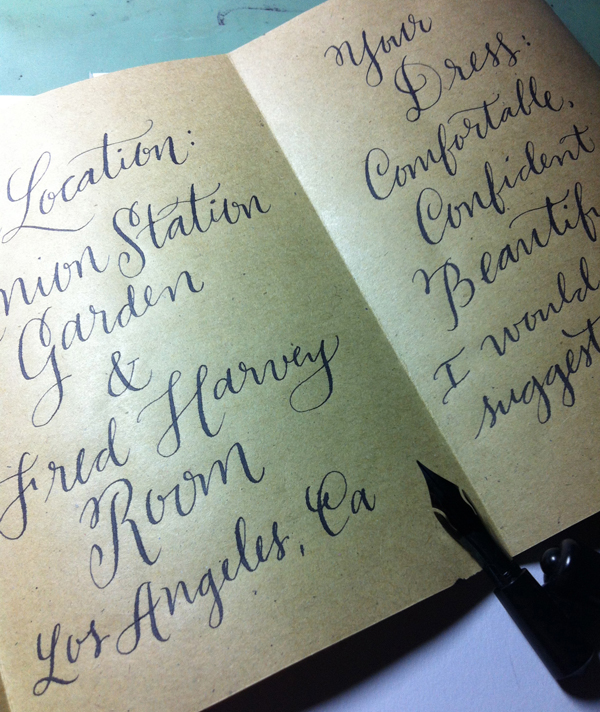 Location:
Union Station
Garden
&
Fred Harvey
Room
Los Angeles, Ca
Your
Dress:
Comfortable,
Confident
I would
suggest